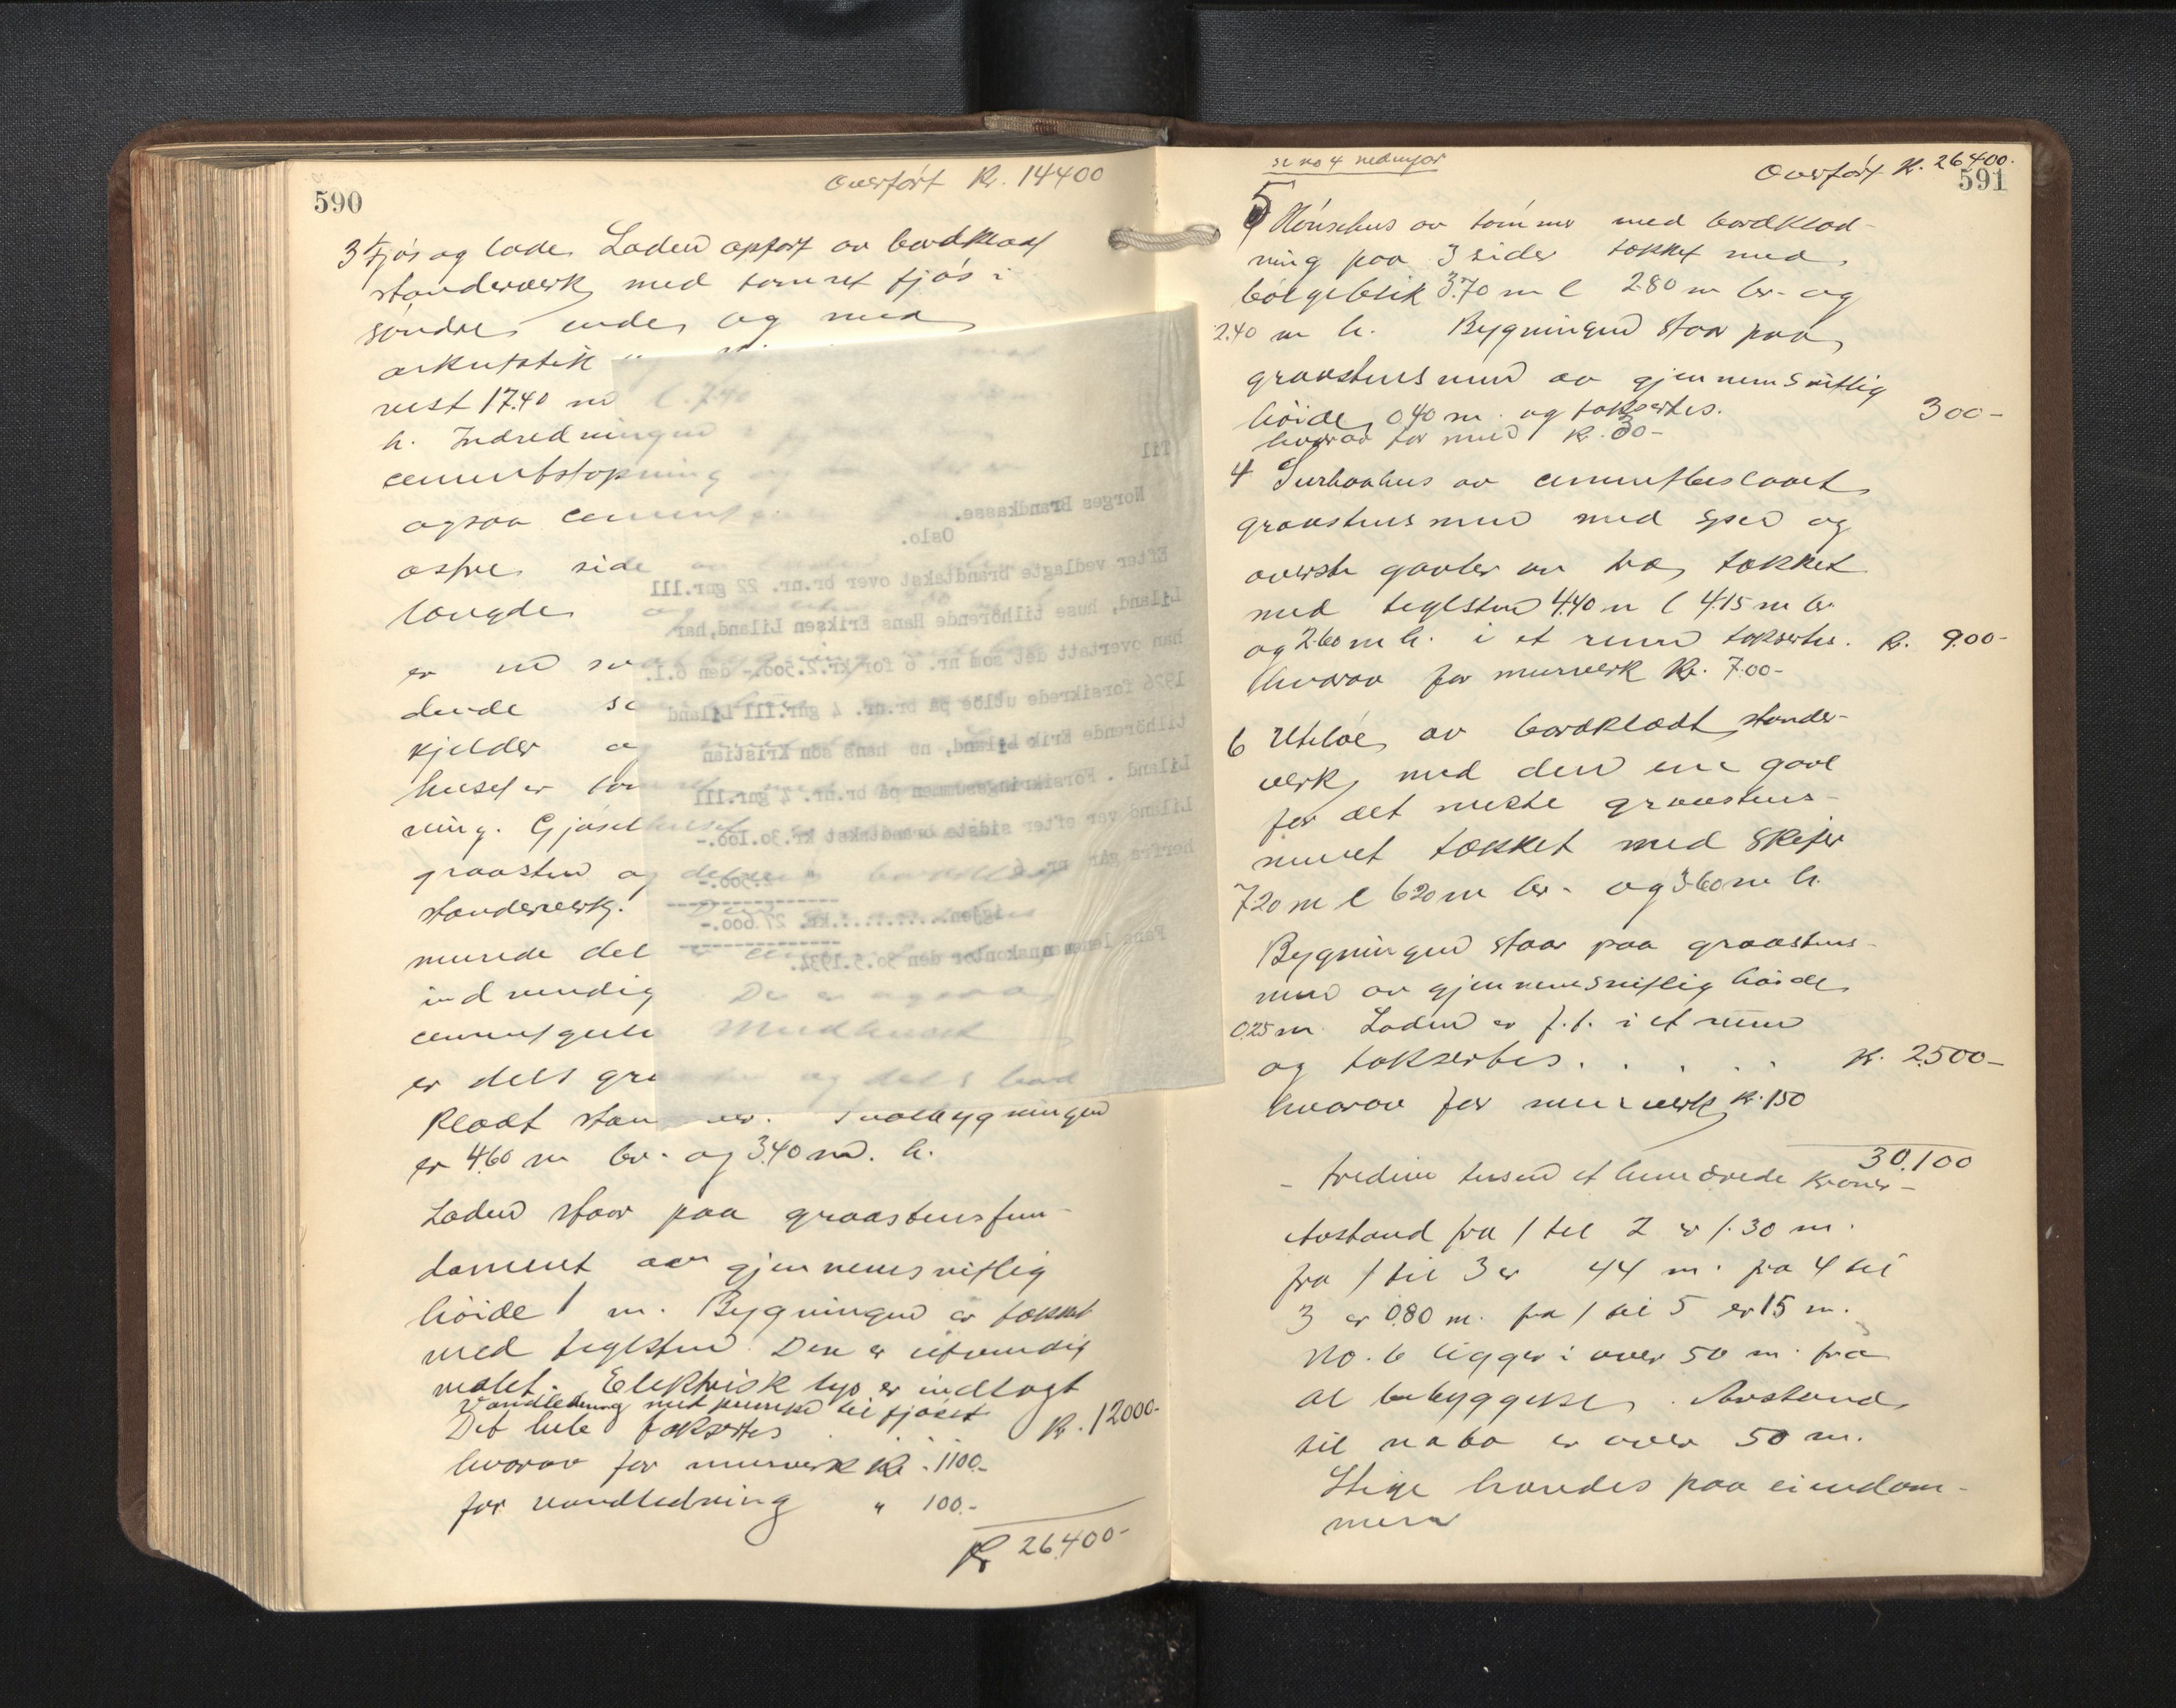 590
Overført Kr. 14400
3 Fjøs og lade. Laden opført av bordklædt
standerverk med tømret fjøs i
søndre ende og med
arkutstik
vest 17.40 m l. 7.40
h. Indredningen
cementstøpning
ogsaa cement
østre side
længde
er en sva
dende
kjelder og
huset er tøm
ning. Gjødselhuset
graasten og delvis bordklædt
standerverk.
murede del
indvendig Der er ogsaa
cementgulv
er dels graasten og dels bord
klædt stan
er 4.60 m br. og 3.40 m. h.
Laden staar paa graastensfun-
dament av gjennemsnitlig
høide 1 m. Bygningen er tækket
med teglsten. Den er utvendig
malet. Elektrisk lys er indlagt
Vandledning med pumpe til fjøset
Det hele takseres Kr. 12000-
hvorav for murverk Kr. 1100.-
for vandledning " 100.-
Kr 26400-
Til
Norges Brandkasse.
Oslo.
Efter vedlagte brandtakst over br.nr. 22 gnr.111
Liland, huse tilhörende Hans Eriksen Liland, har
han overtatt det som nr. 6 for kr.2.500.- den 6.1.
1926 forsikrede utlöe på br.nr. 4 gnr.111 Liland
tilhörende Erik Liland, nu hans sön Kristian
Liland . Forsikringssummen på br.nr. 4 gnr.111
Liland var efter sidste brandtakst kr.30.100.-
herfra går nr. 6 2.500.-
igjen..........kr. 27.600.-
Fana lensmannskontor den 30.5.1934.
se no 4 nedenfor
Overført Kr. 26400.
591
5 Hønsehus av tømmer med bordklæd-
ning paa 3 sider tækket med
bølgeblik 3.70 m l 2.80 m br. og
2.40 m h. Bygningen staar paa
graastensmur av gjennemsnitlig
høide 0.40 m. og takseres. 300-
hvorav for mur Kr. 30-
4 Surhaahus av cementbeslaaet
graastensmur med sper og
øverste gavler av træ, tækket
med teglsten 4.40 m l 4.15 m br
og 2.60 m h. i et rum takseres. Kr. 900-
hvorav for murverk Kr. 700-
6 Utløe av bordklædt stander-
verk, med den ene gavl
for det meste graastens-
muret tækket med skifer
7.20 m l 6.20 m br. og 3.60 m h.
Bygningen staar paa graastens-
mur av gjennemsnitlig høide
0.25 m. Laden er f.t. i et rum
og takseres . . . . . Kr. 2500-
hvorav for murverk Kr. 150
30.100
- tredive tusen et hundrede kroner -
Avstand fra 1 til 2 er 1.30 m.
fra 1 til 3 er 44 m. fra 4 til
3 er 0.80 m. fra 1 til 5 er 15 m.
No. 6 ligger i over 50 m. fra
al bebyggelse. Avstand
til nabo er over 50 m.
Stige havdes paa eiendom-
men